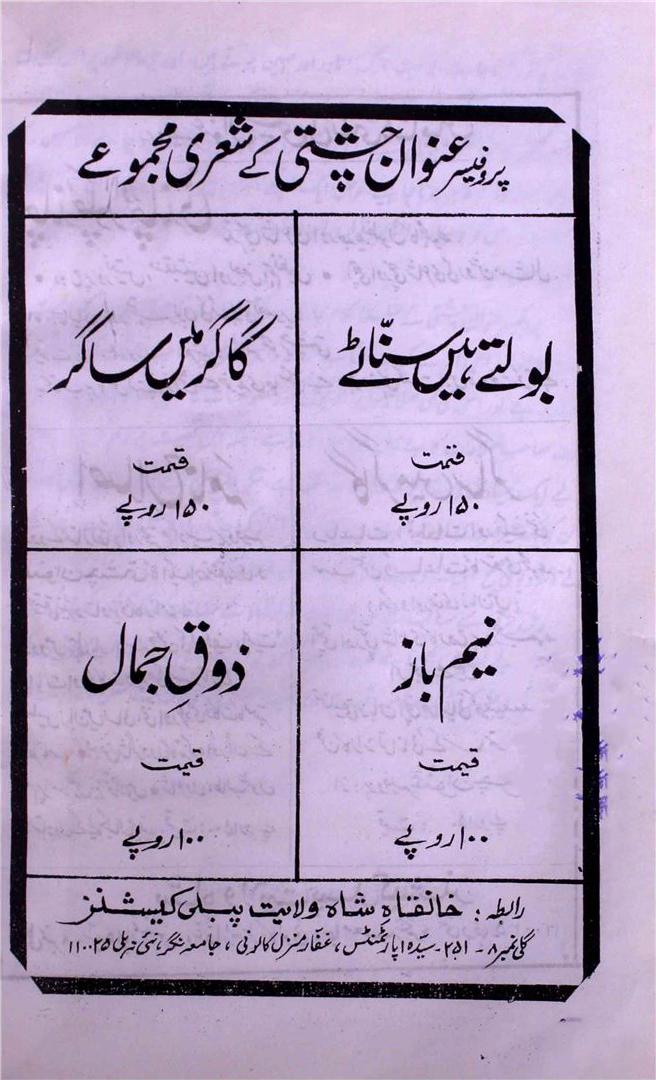 پروفیسر عنوان چشتی کے شعری مجموعے
بولتے ہیں سنّاٹے
قیمت
۱۵۰ روپے
گاگر میں ساگر
قیمت
۱۵۰ روپے
نیم باز
قیمت
۱۰۰ روپے
ذوقِ جمال
قیمت
۱۰۰ روپے
رابطہ: خانقاہ شاہ ولایت پبلی کیشنز
گلی نمبر ۸-۲۵۱ سیدہ اپارٹمنٹس، غفار منزل کالونی، جامعہ نگر، نئی دہلی ۱۱۰۰۲۵